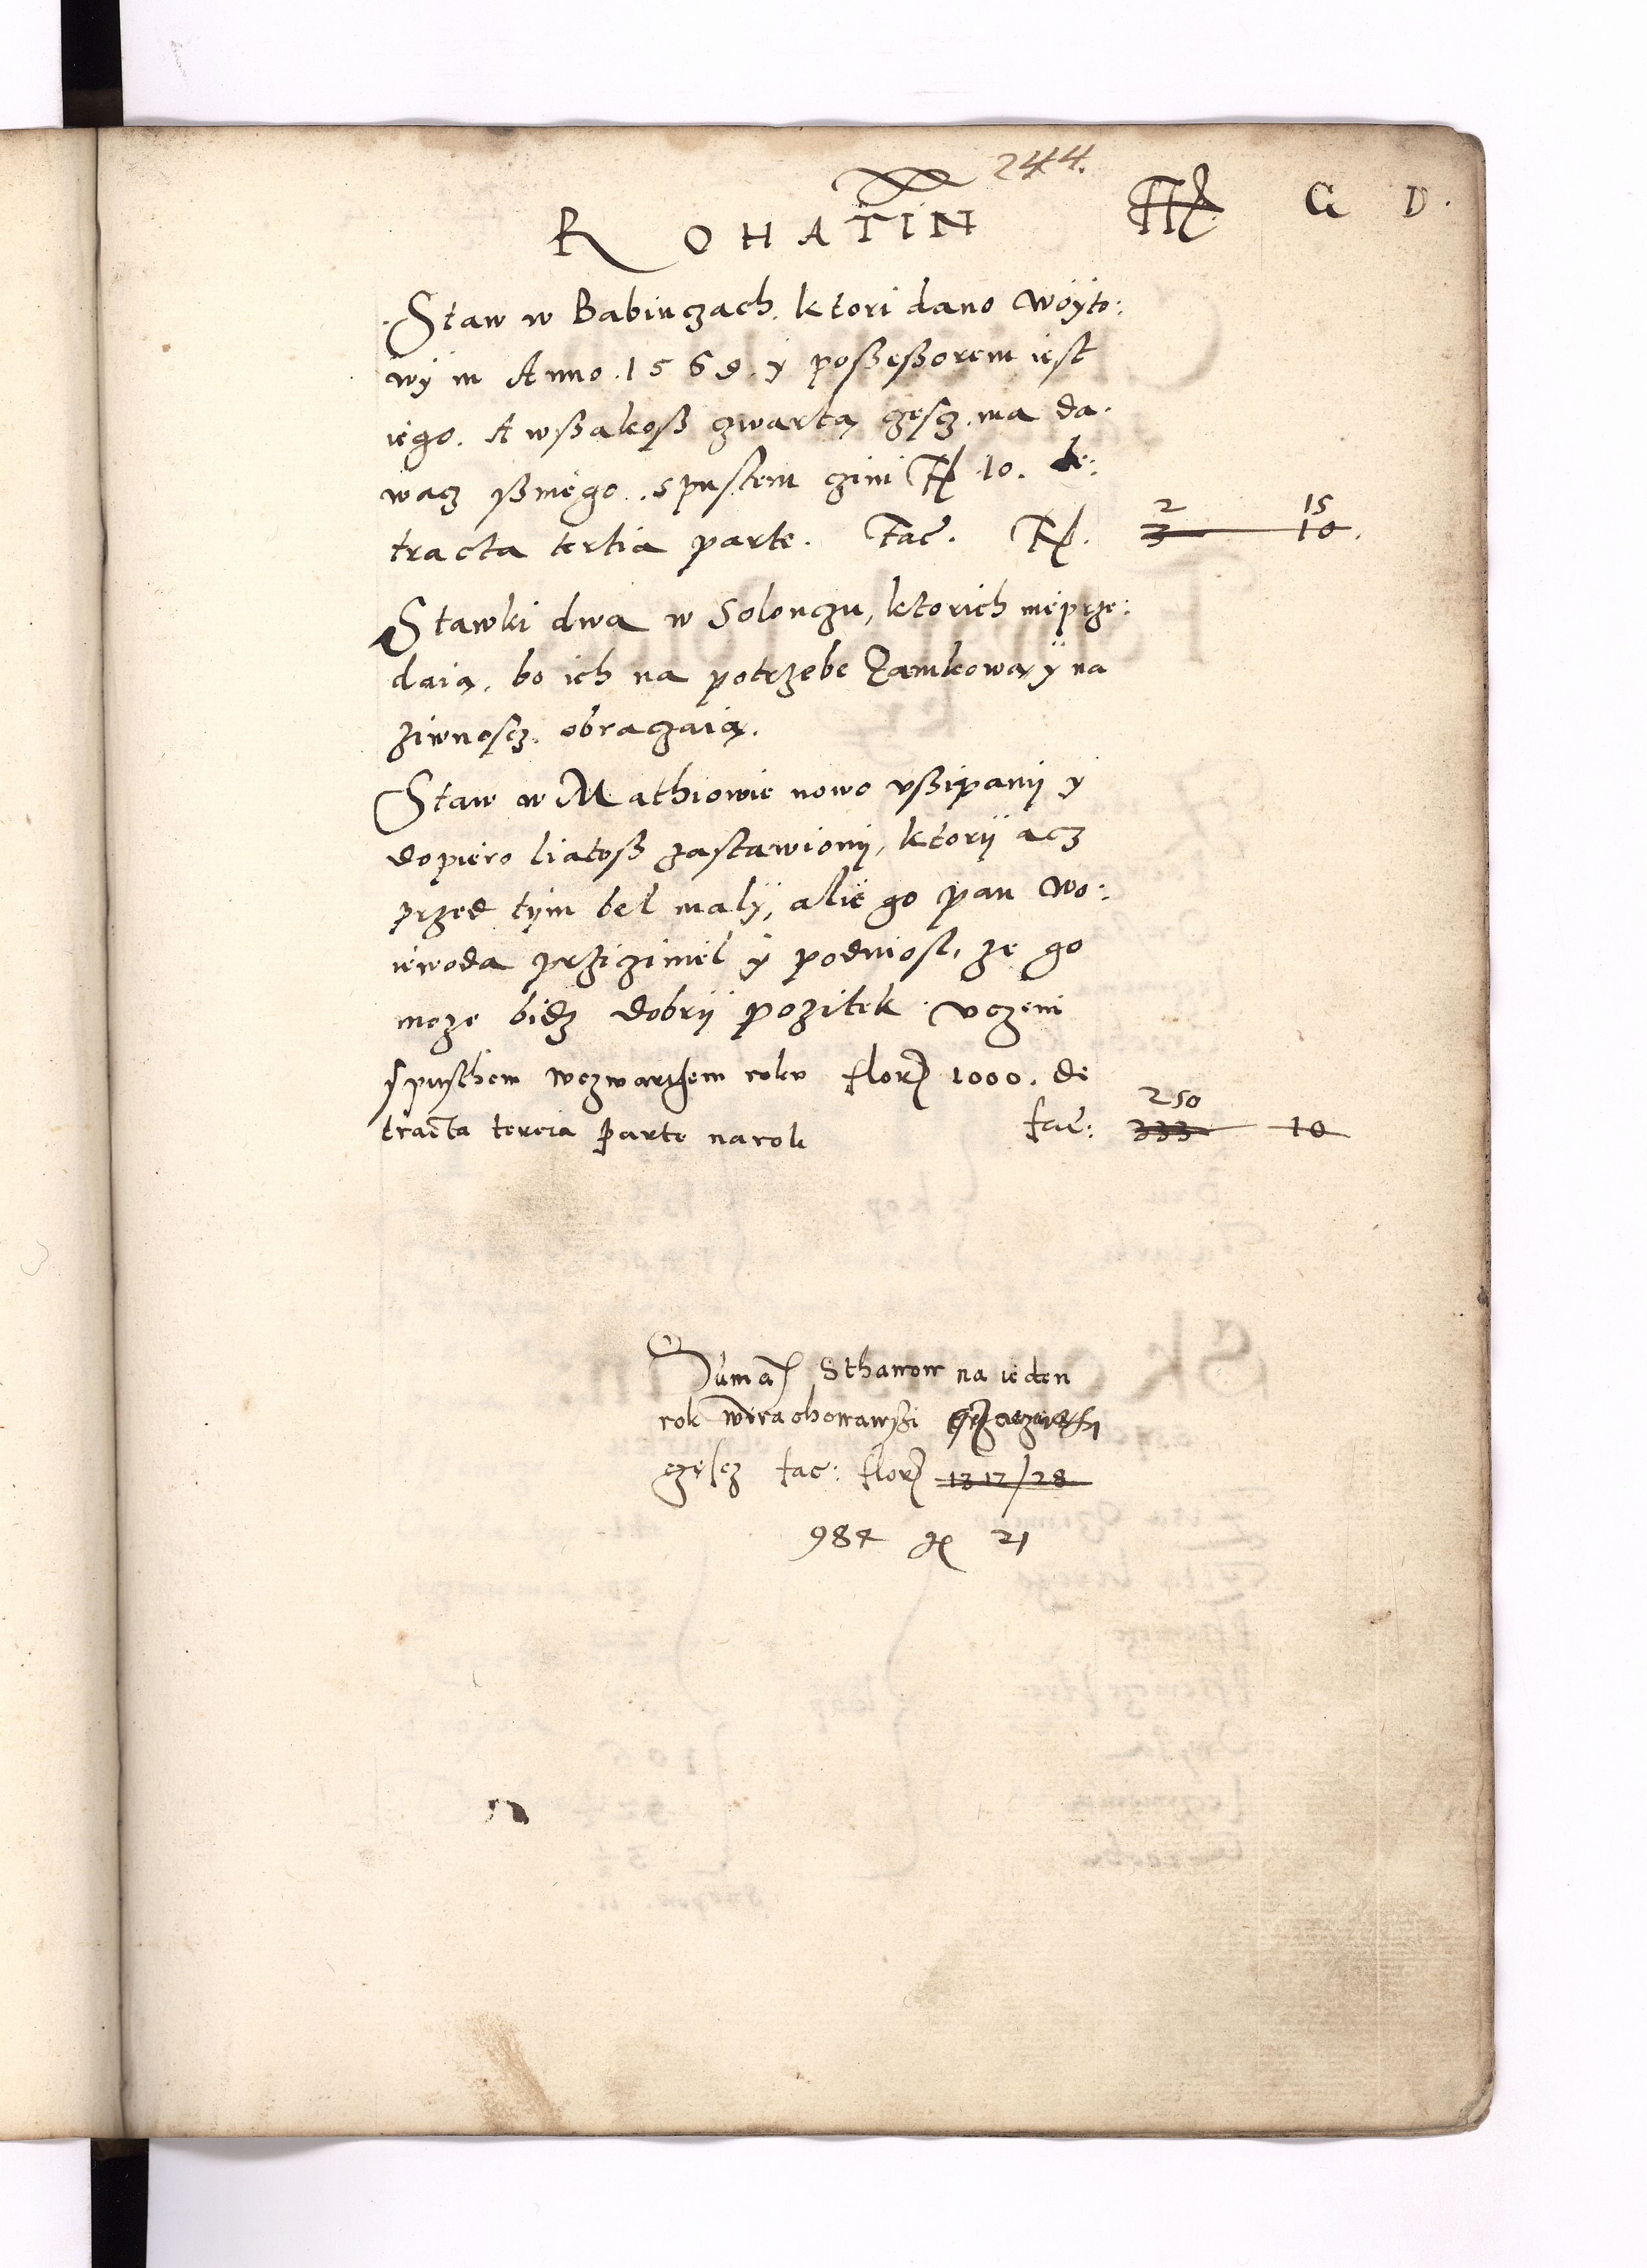 244.
ROHATIN Fl G D.
Staw w Babinczach, ktori dano woyto:
wÿ in Anno .1569. ÿ poßeßorem iest
iego. A wßakoß czwartą częscz. ma da.
wacz ßniego. Spustem czini Fl 10. de:
2 15
tracta tertia parte. Fac. Fl. 3 10.
Stawki dwa w Solonczu, ktorich nieprze:
daią, bo ich na potrzebe Zamkową ÿ na
ziwnoscz. obraczaią.
Staw w Mathiowie nowo vßipanÿ ÿ
dopiero liatoß zastawionÿ, ktorÿ acz
przed tÿm bel malÿ, alie go pan Wo:
iewoda prziziniel ÿ podniosl, ze go
moze bidz dobrÿ pozitek. Vczeni
spusthem wczwarthem roku flor 1000. de
250
tracta tercia parte narok fac: 333 10
Suma Sthawow na ieden
rok wirachowawssi
częscz fac: flor 1312/28
984 gr 21